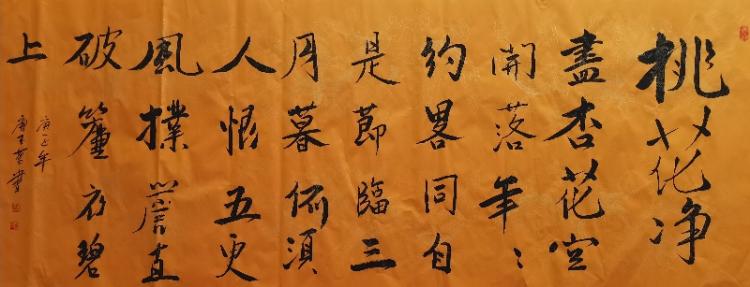 桃花净
盡杏花空
開落年〻
約畧同自
是節臨三
月暮何須
人恨五更
風撲簷直
破簾衣碧
上
庚子年